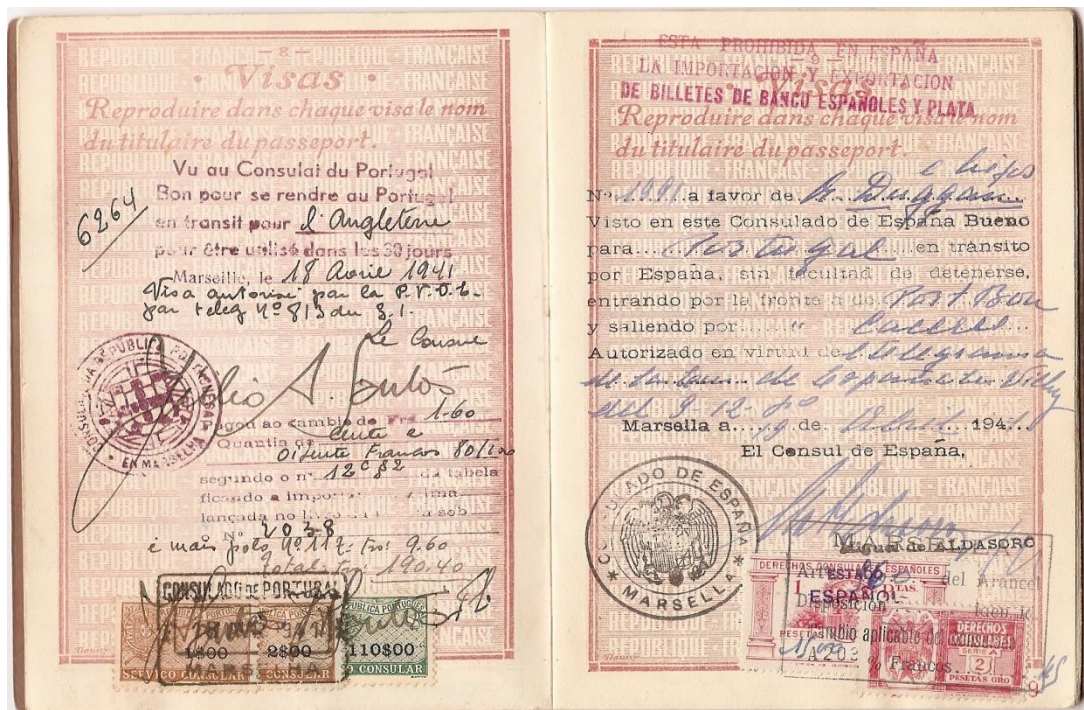 — 8 —
Visas
Reproduire dans chaque visa le nom
du titulaire du passeport.
6264
Vu au Consulat du Portugal
Bon pour se rendre au Portugal
en transit pour l'Angleterre
pour être utilisé dans les 30 jours
Marseille, le 18 Avril 1941
Visa autorisé par la P.V.D.E.
par teleg nº 813 du 3.1.
Le Consul
CONSULADO DA REPUBLICA PORTUGUESA
EM MARSELHA
Pagou ao cambio de Frs 1-60
Quantia de cento e
oitenta Francos 80/100
segundo o nº 12 da tabela
ficando a importancia
lançada no livro sob
Nº 2038
e mais pelo nº 112- frs: 9.60
Total: frs: 190.40
CONSULADO DE PORTUGAL
MARSELHA
1$00
2$00
110$00
SERVIÇO CONSULAR
— 9 —
ESTA PROHIBIDA EN ESPAÑA
LA IMPORTACION Y EXPORTACION
DE BILLETES DE BANCO ESPAÑOLES Y PLATA
Visas
Reproduire dans chaque visa le nom
du titulaire du passeport.
e hijos
Nº 1991 a favor de Duggan
Visto en este Consulado de España Bueno
para Portugal en tránsito
por España, sin facultad de detenerse,
entrando por la frontera de Port Bou
y saliendo por " Caceres
Autorizado en virtud de telegrama
de la de España en Vichy
del 9-12-40
Marsella a 19 de Abril 194
El Consul de España,
CONSULADO DE ESPAÑA
MARSELLA
Miguel de ALDASORO
DERECHOS CONSULARES ESPAÑOLES
ESTADO
ESPAÑOL
PESETAS
del Arancel
Disposición
Cambio aplicable del
% Francos
DERECHOS
CONSULARES
SERIE A
2
PESETAS ORO
9